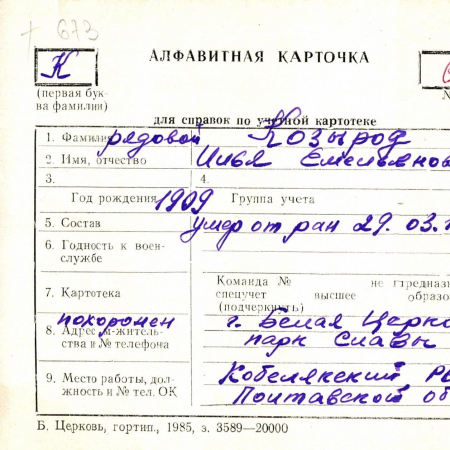 + 673
АЛФАВИТНАЯ КАРТОЧКА
К
(первая бук-
ва фамилии)
для справок по учетной картотеке
1. Фамилия рядовой Козырод
2. Имя, отчество Илья Емельянов
3. 4.
Год рождения 1909 Группа учета
5. Состав умер от ран 29. 03.
6. Годность к воен-
службе
Команда № не предназ
7. Картотека спецучет высшее образо
(подчеркнуть)
похоронен г. Белая Церко
8. Адрес м-житель-
ства и № телефона парк Славы
9. Место работы, дол- Кобелякский Р
жность и № тел. ОК Полтавской об
Б. Церковь, гортип., 1985, з. 3589—20000